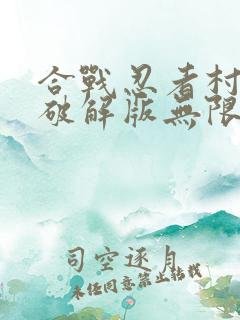 合戰忍者村
破解版無限
司空逐月
未经同意禁止转载